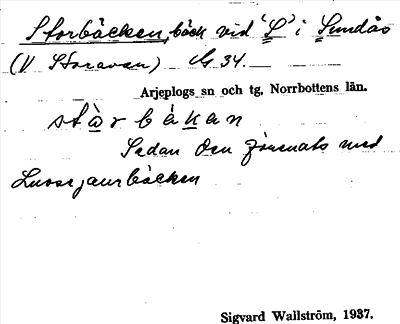 Storbäcken, bäck vid 'L' i Sundås
(V Storavan) Ls 34.
Arjeplogs sn och tg, Norrbottens län.
stòrbäkan
Sedan den förenats med
Lussejaurbäcken
Sigvard Wallström, 1937.